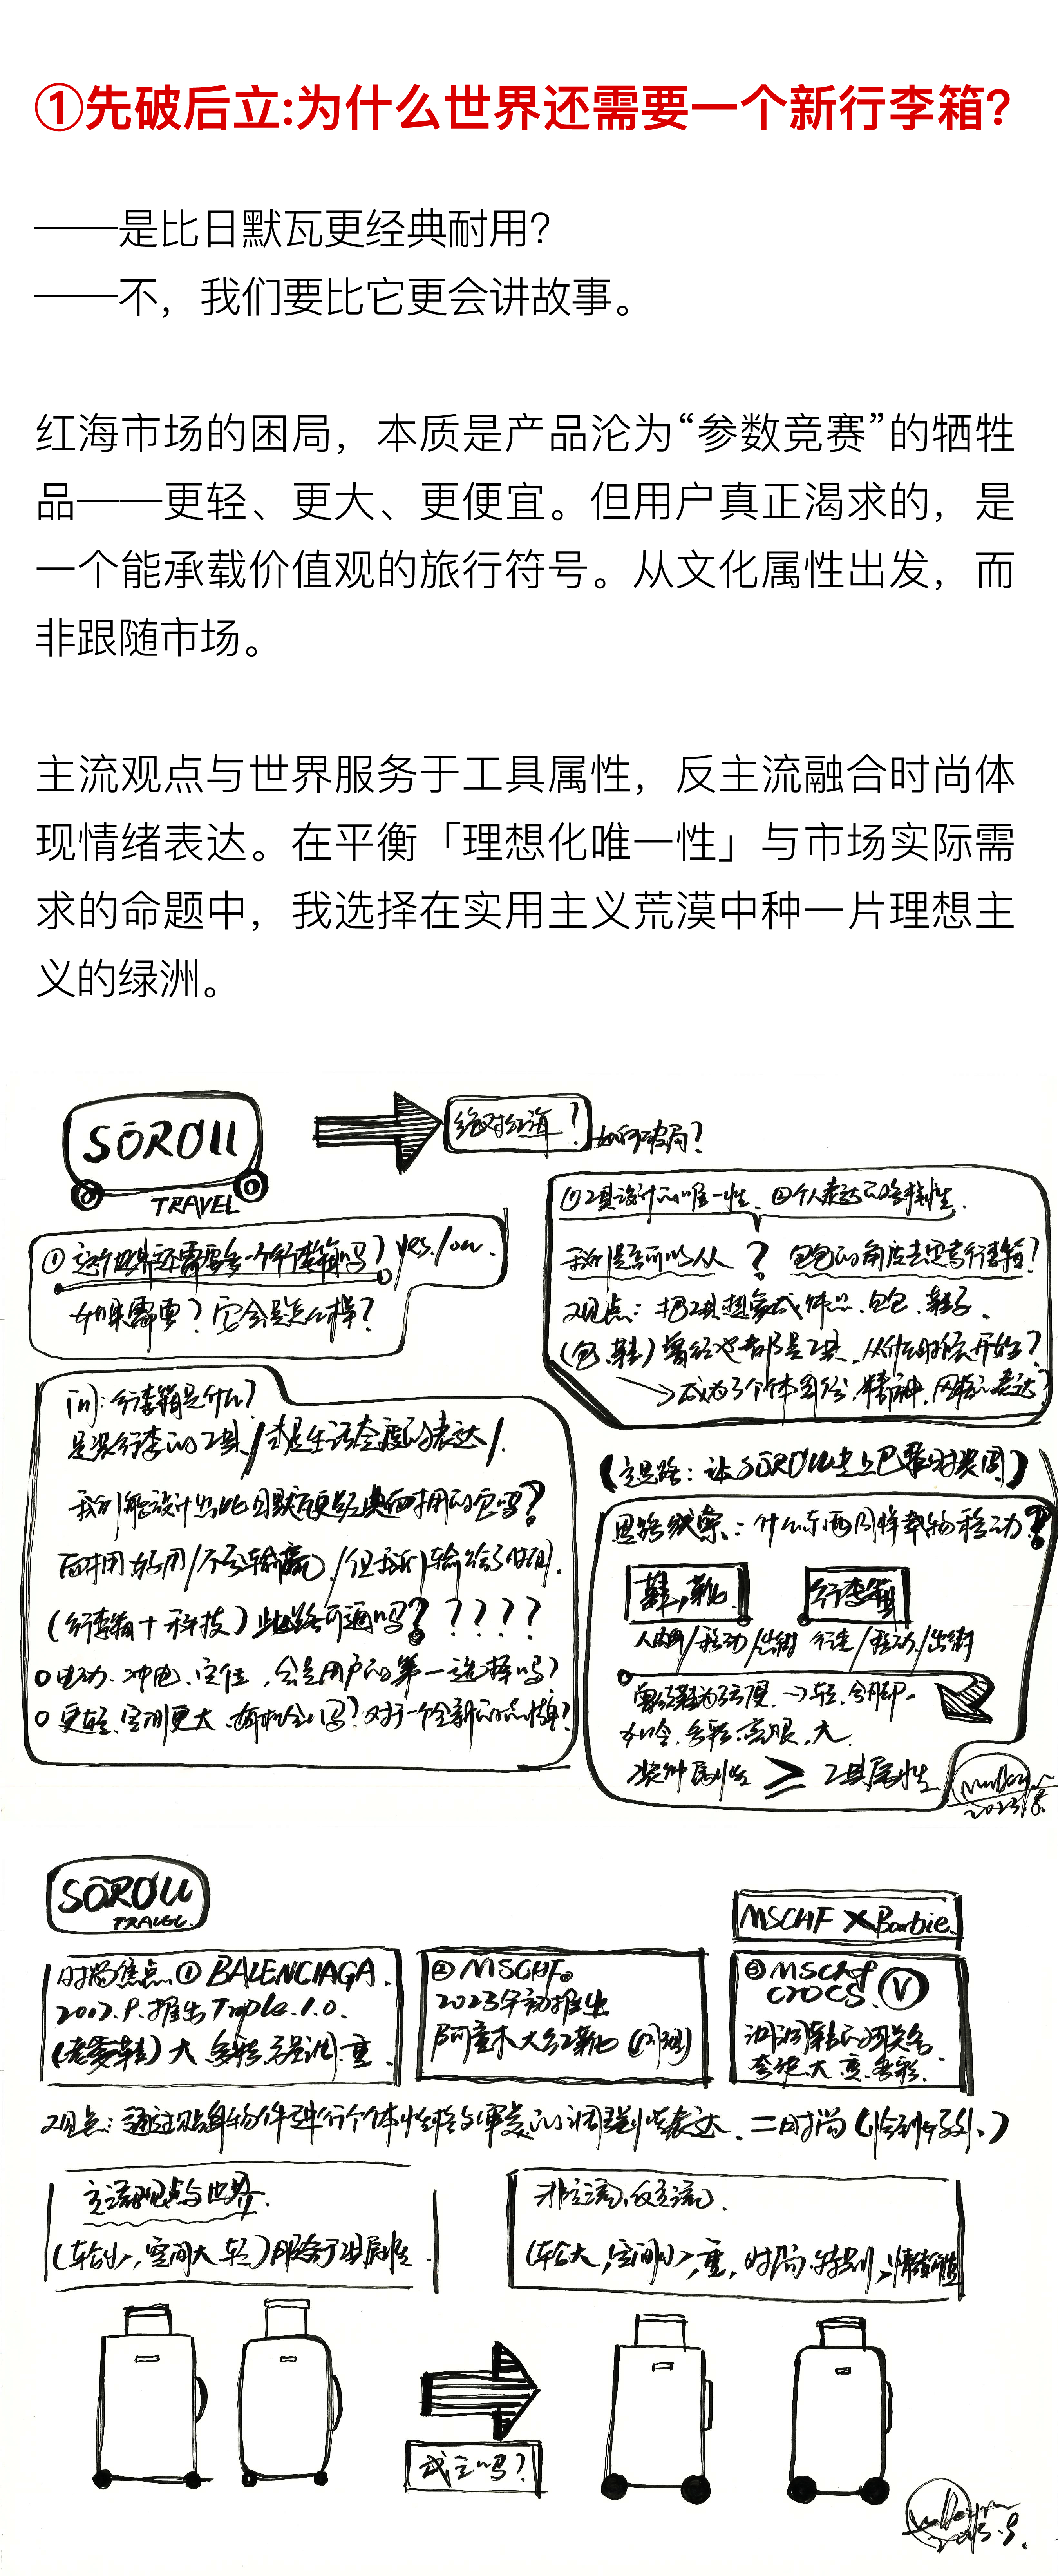 ①先破后立:为什么世界还需要一个新行李箱?
——是比日默瓦更经典耐用?
——不，我们要比它更会讲故事。
红海市场的困局，本质是产品沦为“参数竞赛”的牺牲
品——更轻、更大、更便宜。但用户真正渴求的，是
一个能承载价值观的旅行符号。从文化属性出发，而
非跟随市场。
主流观点与世界服务于工具属性，反主流融合时尚体
现情绪表达。在平衡「理想化唯一性」与市场实际需
求的命题中，我选择在实用主义荒漠中种一片理想主
义的绿洲。
SOROll
TRAVEL
绝对红海?
如何破局?
①这个世界还需要多一个行李箱吗?yes/on.
如果需要?它会是怎么样?
问:行李箱是什么?
是装行李的工具/或是生活态度的表达/.
我们能设计出比日默瓦更经典耐用的它吗?
耐用好用/不会输赢/但我们输给了时间.
(行李箱+科技)此路可通吗? ? ? ? ?
电动.冲电.定位,会是用户的第一选择吗?
更轻.空间更大.有机会吗?对于一个全新的品牌?
①工具设计的唯一性.②个人表达的
我们是否可以从? 包包的角度去思考行李箱?
观点:把工具想象成饰品.包包.鞋子.
(包.鞋)曾经也都是工具.从什么时候开始?
→成为了个体身份.精神.风格的表达?
(定思路:让SOROLL走上巴黎时装周)
思路线索:什么东西同样载物移动?
鞋,靴.
行李箱
人脚/移动/出街 行走/移动/出街
如今.多彩.高跟,大.
装饰属性≥工具属性
2023.8.
SOROLL
TRAVEL.
MSCHF X Barbie.
时尚焦点①BALENCIAGA.
推出Triple.1.0.
(老爹鞋)大.多彩.强调.重.
②MSCHF.
2023年初推出
阿童木大红靴
③MSCHF
CROCS.V
洞洞鞋的
大.重.多彩.
观点:通过贴身物件进行个体性格的
主流观点与世界.
(轮小,空间大.轻)服务于工具属性.
非主流,反主流.
(轮大,空间小,重,时尚.特别,情绪价值
成立吗?